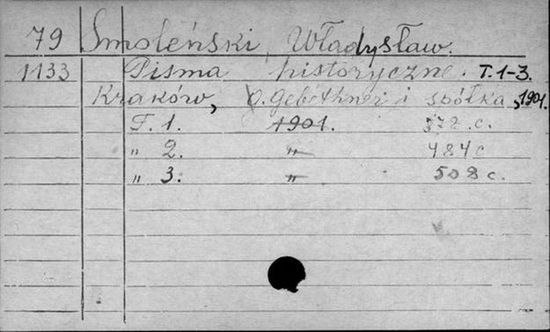 79 Smoleński, Władysław.
1133 Pisma historyczne. T. 1-3.
Kraków, G. Gebethner i spółka, 1901.
T. 1. 1901. 372 c.
„ 2. „ 484 c
„ 3. „ 508 c.